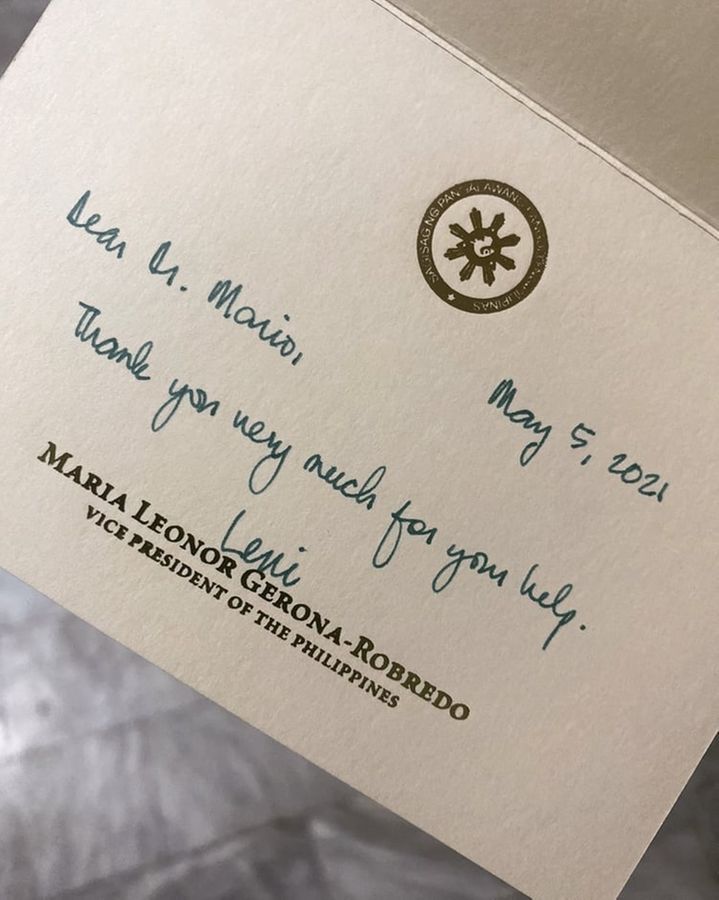 SAGISAG NG PANGALAWANG PANGULO NG PILIPINAS
May 5, 2021
Dear Dr. Mario,
Thank you very much for your help.
Leni
MARIA LEONOR GERONA-ROBREDO
VICE PRESIDENT OF THE PHILIPPINES